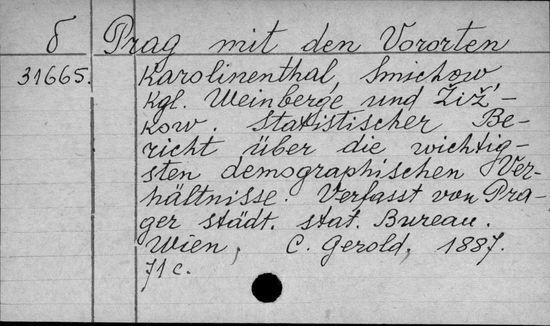 б Prag mit den Vororten
31665. Karolinenthal, Smichow
Kgl. Weinberge und Žiž-
kow. Statistischer Be-
richt über die wichtig-
sten demographischen Ver-
hältnisse. Verfasst von Pra-
ger städt. stat. Bureau.
Wien, C. Gerold, 1887.
71 c.